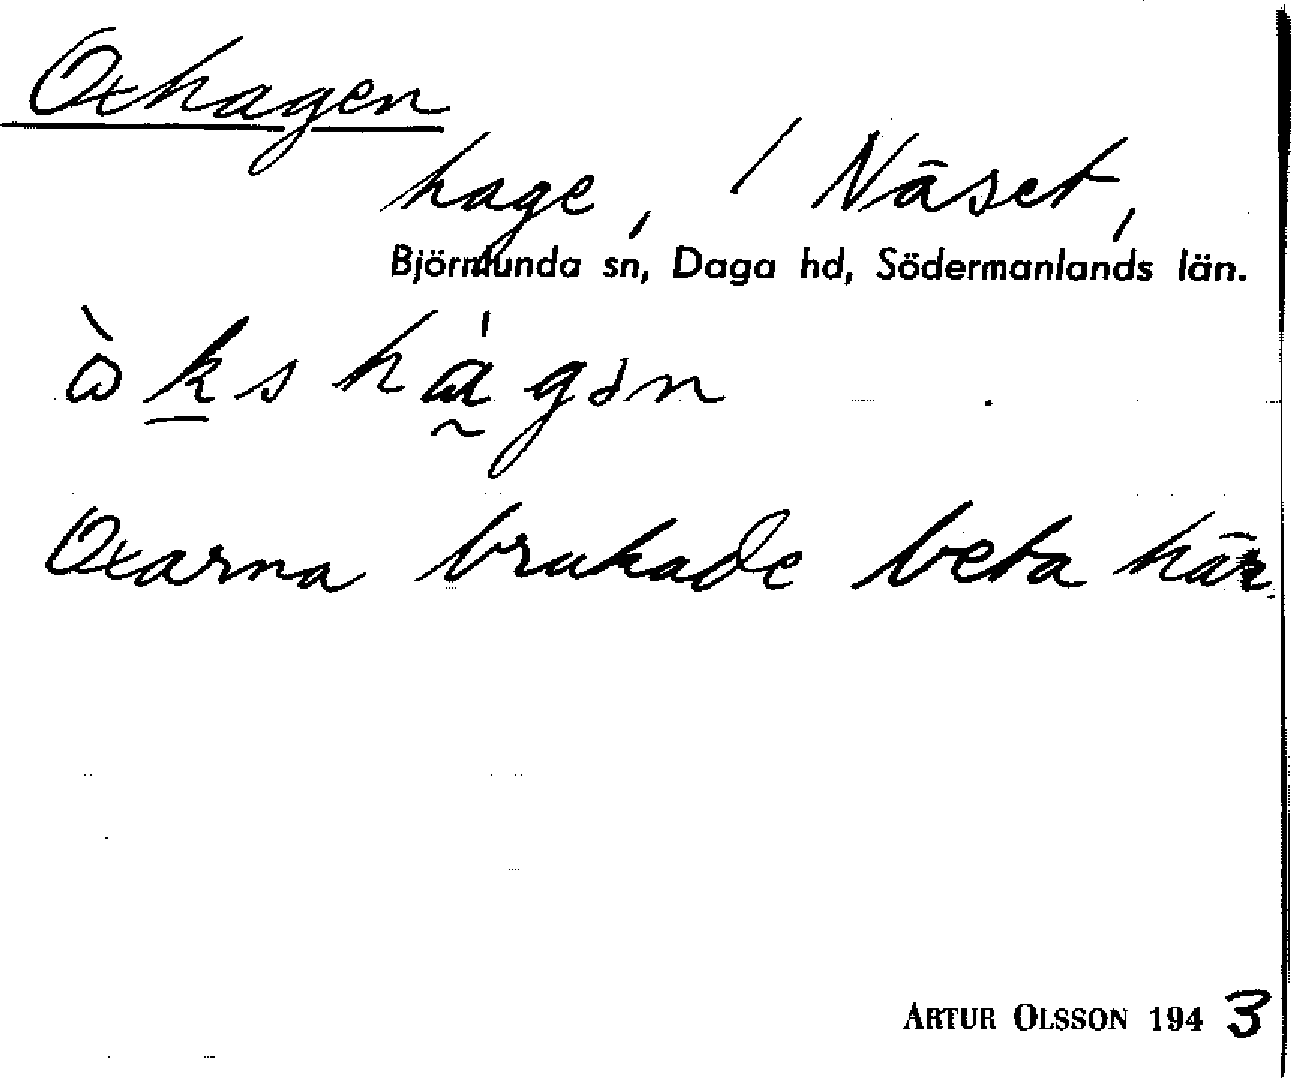 Oxhagen
hage, 1 Näset,
Björnlunda sn, Daga hd, Södermanlands län.
Oxarna brukade beta här
ARTUR OLSSON 1943